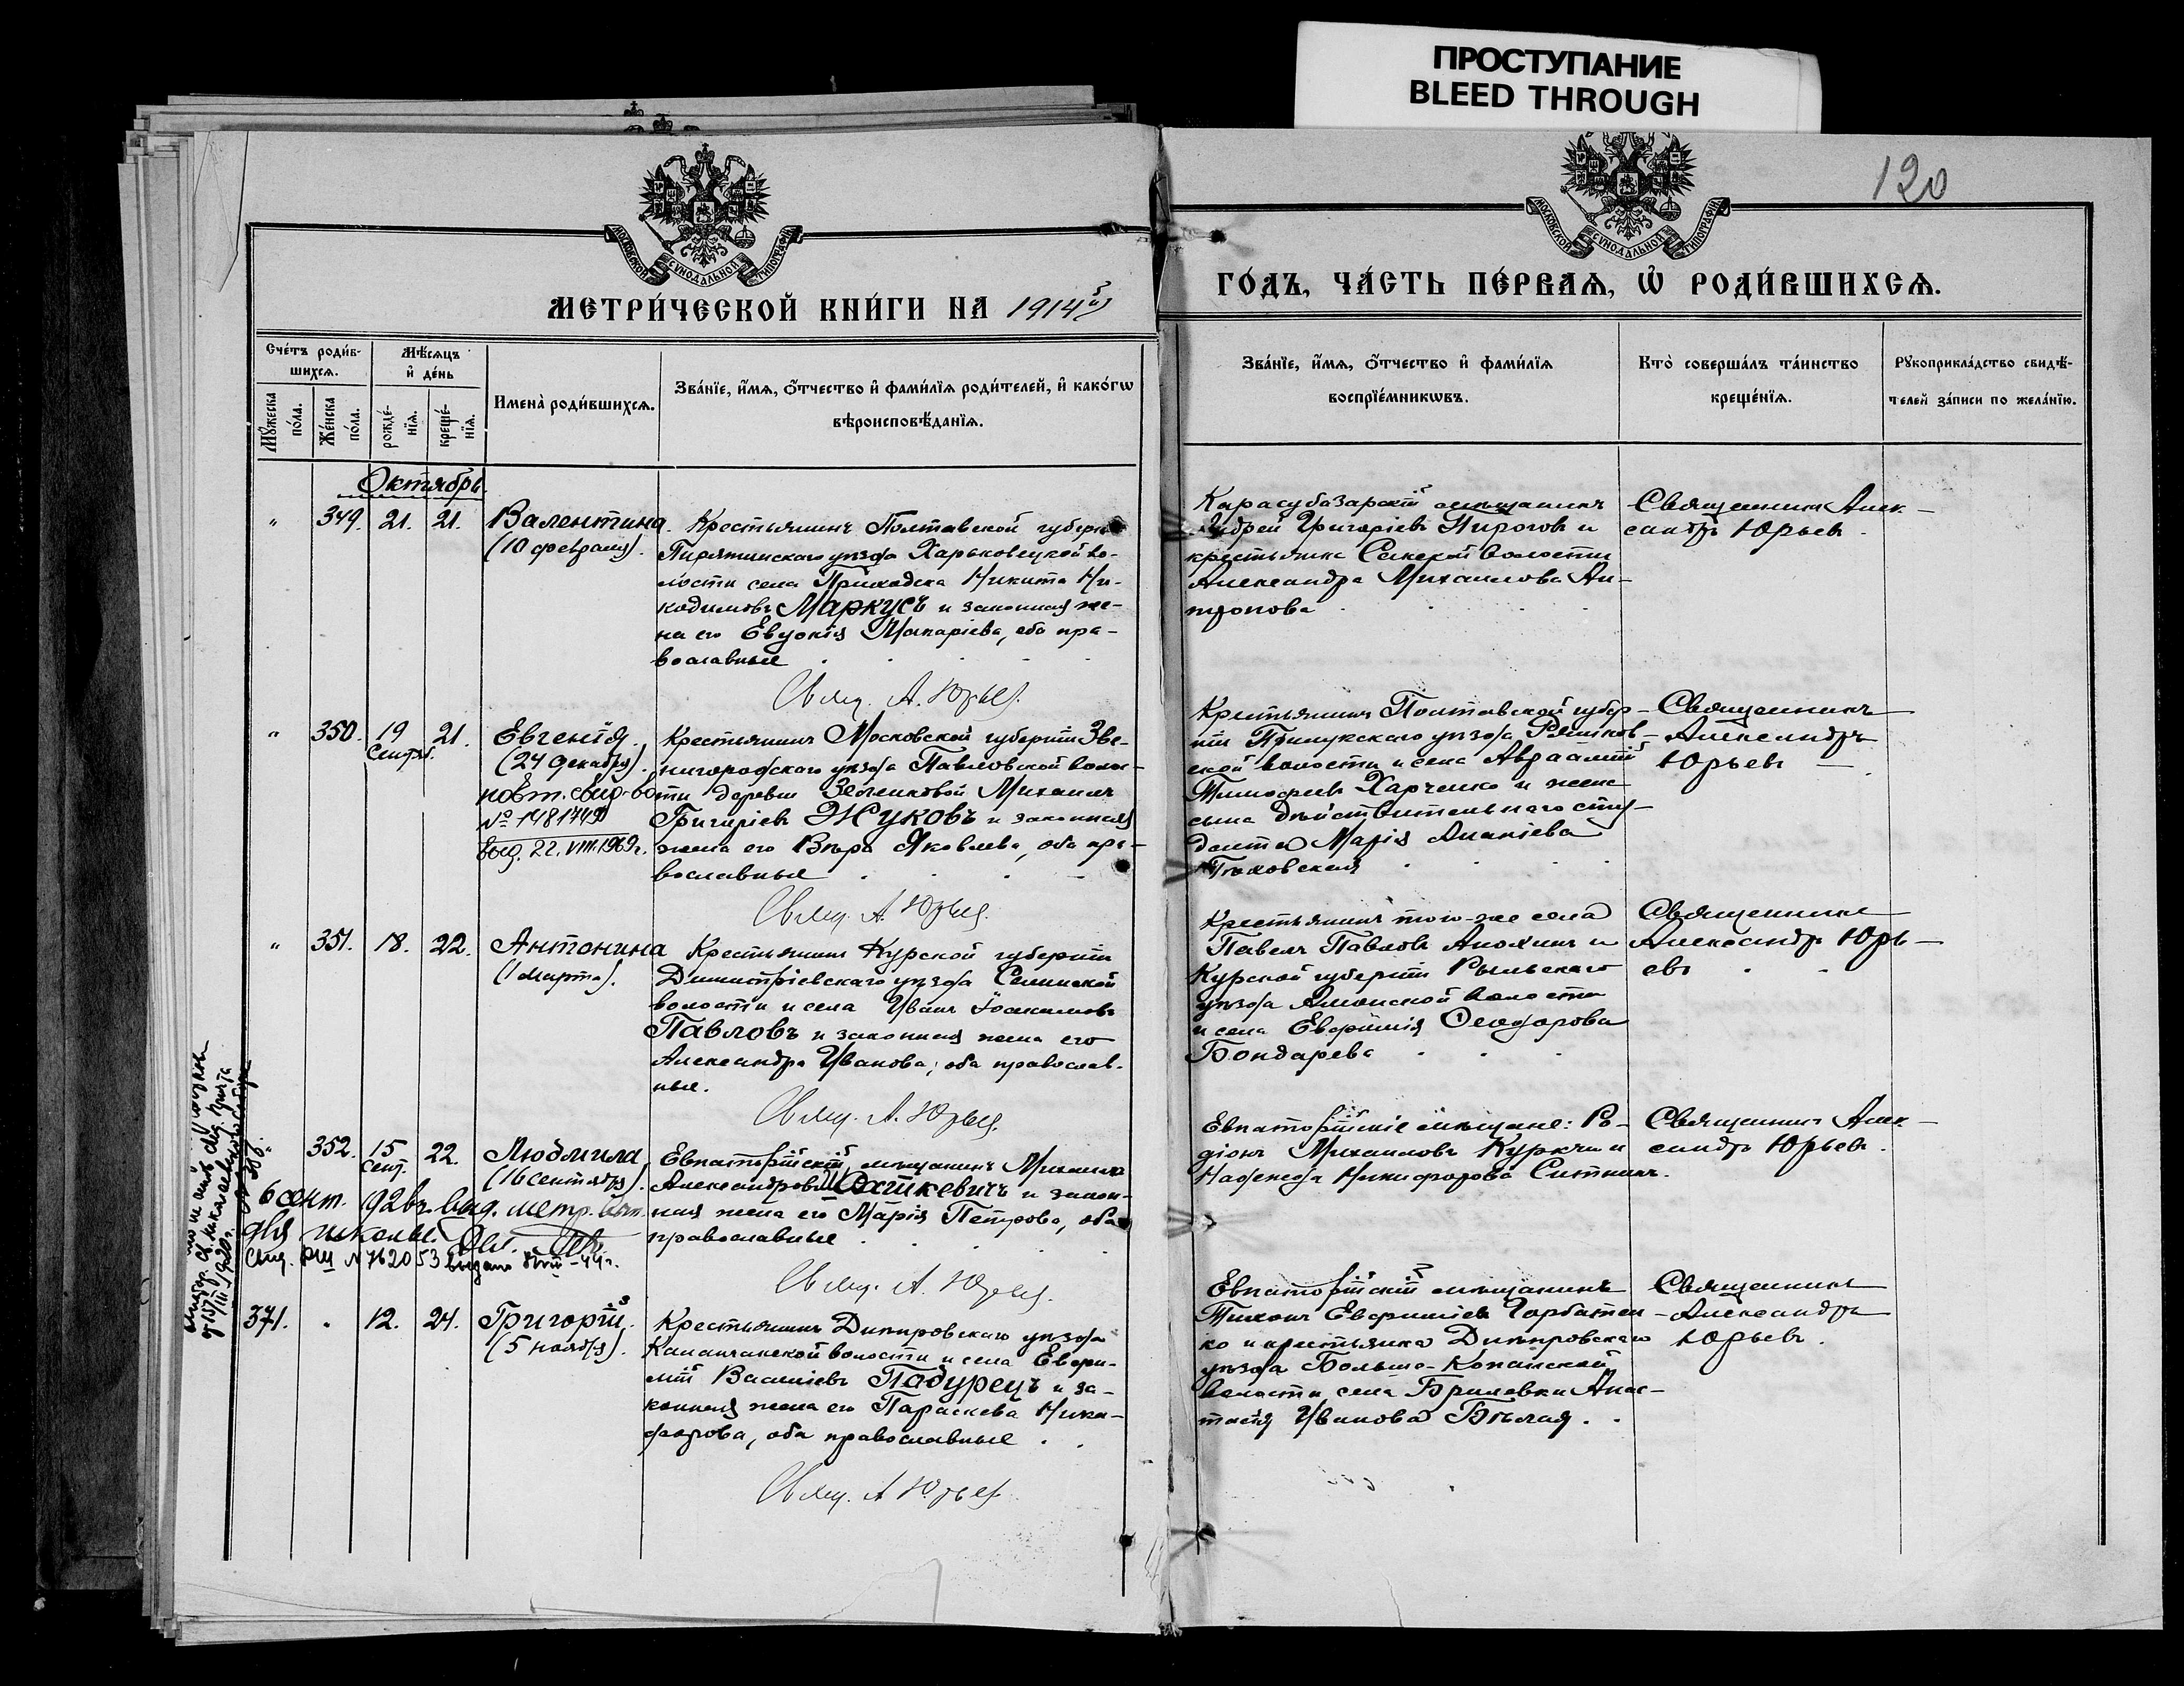 ПРОСТУПАНИЕ
BLEED THROUGH
120
МОСКОВСКОЙ СѴНОДАЛЬНОЙ ТИПОГРАФІИ
МОСКОВСКОЙ СѴНОДАЛЬНОЙ ТИПОГРАФІИ
МЕТРИ́ЧЕСКОЙ КНИ́ГИ НА 1914й
ГО́ДЪ, ЧА́СТЬ ПЕ́РВАѦ, Ѽ РОДИ́ВШИХСѦ.
Сче́тъ роди́в-
шихсѧ.
Мꙋ́жеска
по́ла.
Же́нска
по́ла.
Мѣ́сѧцъ
и҆ де́нь
рожде́-
нїѧ.
креще́-
нїѧ.
Имена̀ роди́вшихсѧ.
Зва́нїе, и҆́мѧ, ѻ҆́тчество и҆ фами́лїѧ роди́телей, и҆ како́гѡ
вѣроисповѣ́данїѧ.
Зва́нїе, и҆́мѧ, ѻ҆́тчество и҆ фами́лїѧ
воспрїе́мникѡвъ.
Кто̀ соверша́лъ та́инство
креще́нїѧ.
Рꙋкоприкла́дство свидѣ́-
телей за́писи по жела́нїю.
Октябрь
" 349. 21. 21. Валентина.
(10 февраля).
Крестьянинъ Полтавской губерн
Пирятинскаго уѣзда Харьковецкой во-
лости села Приходска Никита Ни-
кодимовъ Маркусъ и законная же-
на его Евдокія Макаріева, оба пра-
вославные
Свящ. А. Юрьев.
Карасубазарскій мѣщанинъ
Андрей Григоріевъ Пироговъ и
крестьянка Сенской волости
Александра Михаилова Ан-
тропова
Священникъ Алек-
сандръ Юрьевъ.
" 350. 19 21. Евгенія.
Сентяб.
(24 декабря).
повт. свид-во
№ 1481749
выд. 22.VIII.1969г.
Крестьянинъ Московской губерніи Зве-
нигородскаго уѣзда Павловской волос-
ти деревни Зеленковой Михаилъ
Григоріевъ Жуковъ и законная
жена его Вѣра Яковлева, оба пра-
вославные
Свящ. А. Юрьев.
Крестьянинъ Полтавской губер-
ніи Прилукскаго уѣзда Рѣшков-
ской волости и села Авраамій
Тимофеевъ Харченко и жена
сына дѣйствительнаго сту-
дента Марія Ананіева
Священникъ
Александръ
Юрьевъ —
" 351. 18. 22. Антонина
(1 марта).
Крестьянинъ Курской губерніи
Димитріевскаго уѣзда Селинской
волости и села Иванъ Іоакимовъ
Павловъ и законная жена его
Александра Иванова, оба православ-
ные.
Свящ. А. Юрьев.
Крестьянинъ того-же села
Павелъ Павловъ Анохинъ и
Курской губерніи Рыльскаго
уѣзда Амонской волости
и села Евфимія Ѳеодорова
Бондарева
Священникъ
Александръ Юрь-
евъ
352. 15 22. Людмила
Сент.
(16 сентября).
6 сент. 192 г. выд. метр. вып.
для школы
Свид. № 762053 выдано
Евпаторійскій мѣщанинъ Михаилъ
Александровъ Юхткевичъ и закон-
ная жена его Марія Петрова, оба
православные
Свящ. А. Юрьев.
Евпаторійскіе мѣщане: Ро-
діонъ Михаиловъ Куркчи и
Надежда Никифорова Ситникъ.
Священникъ Алек-
сандръ Юрьевъ.
371. " 12. 24. Григорій.
(5 ноября).
Крестьянинъ Днѣпровскаго уѣзда
Каланчакской волости и села Евфи-
мій Василіевъ Падурецъ и за-
конная жена его Параскева Ники-
форова, оба православные
Свящ. А. Юрьев.
Евпаторійскій мѣщанинъ
Тихонъ Евфиміевъ Горбатен-
ко и крестьянка Днѣпровскаго
уѣзда Больше-Копанской
волости села Бриловки Анас-
тасія Иванова Бѣлая.
Священникъ
Александръ
Юрьевъ.